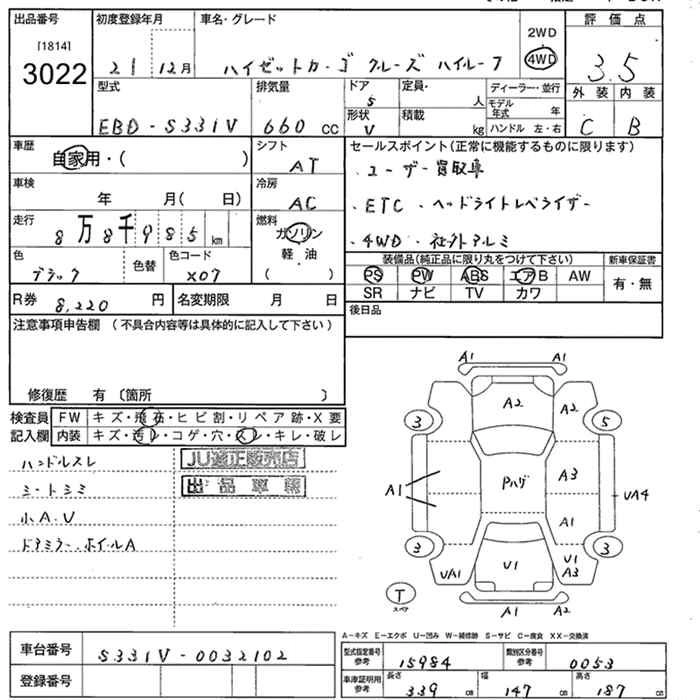 出品番号 初度登録年月 車名・グレード
[1814]
3022
21 12月 ハイゼットカーゴ クルーズ ハイルーフ
2WD
4WD
評価点
3.5
外装 内装
C B
型式 排気量 ドア 定員
EBD-S331V 660 cc 5 人
形状 積載
V kg
ディーラー・並行
モデル年式 年
ハンドル 左・右
車歴 自家用・( )
シフト
AT
車検 年 月( 日)
冷房
AC
走行 8万8千985 km
燃料
ガソリン
軽油
( )
色 色替 色コード
ブラック X07
R券 8,220 円 名変期限 月 日
セールスポイント(正常に機能するものに限ります)
・ユーザー買取車
・ETC ・ヘッドライトレベライザー
・4WD ・社外アルミ
装備品(純正品に限り丸をつけて下さい) 新車保証書
PS PW ABS エアB AW 有・無
SR ナビ TV カワ
後日品
注意事項申告欄 (不具合内容等は具体的に記入して下さい)
修復歴 有 (箇所 )
検査員 FW キズ・飛石・ヒビ割・リペア跡・X要
記入欄 内装 キズ・汚レ・コゲ・穴・スレ・キレ・破レ
ハンドルスレ
シートシミ
小A.U
ドアミラー.ホイルA
JU適正販売店
出品車輌
A1 A1
A2 A2
3 5
Pハゲ A3
A1 UA4
A1
3 3
UA1 U1 U1
A3
T
スペア
A1 A2
A-キズ E-エクボ U-凹み W-補修跡 S-サビ C-腐食 XX-交換済
車台番号 S331V-0032102
登録番号
型式指定番号 参考 15984 類別区分番号 参考 0053
車庫証明用 参考 長さ 339 cm 幅 147 cm 高さ 187 cm